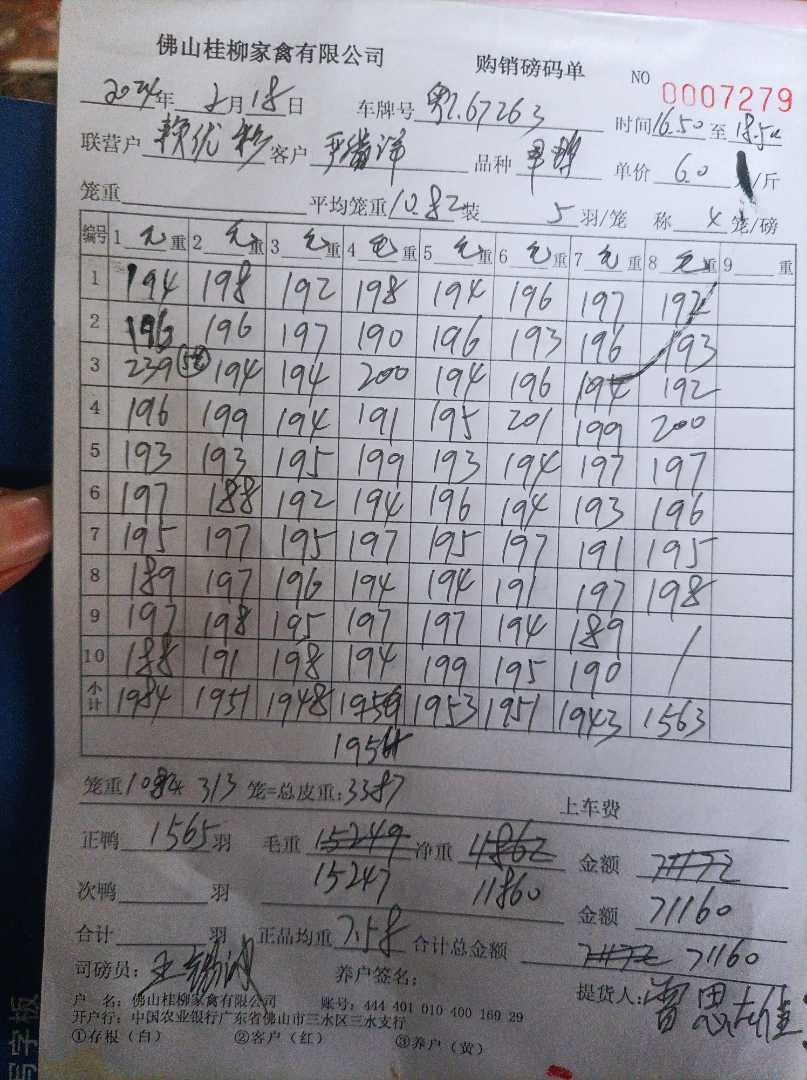 佛山桂柳家禽有限公司 购销磅码单 NO 0007279
2024年 2月18日 车牌号 67263 时间16.50至18.50
联营户 客户 品种 单价 6.0 /斤
笼重 平均笼重10.82 装 5 羽/笼 称 4 笼/磅
编号 1 元重 2 元重 3 元重 4 元重 5 元重 6 元重 7 元重 8 元重 9 重
1 194 198 192 198 194 196 197 192
2 196 196 197 190 196 193 196 193
3 239 194 194 200 194 196 194 192
4 196 199 194 191 195 201 199 200
5 193 193 195 199 193 194 197 197
6 197 188 192 194 196 194 193 196
7 195 197 195 197 195 197 191 195
8 189 197 196 194 194 191 197 198
9 197 198 195 197 197 194 189 /
10 188 191 198 194 199 195 190 /
小计 1984 1951 1948 1953 1951 1943 1563
1954
笼重10.82x 313 笼=总皮重:3387
上车费
正鸭 1565 羽 毛重 15249 净重 11862 金额 71172
15247 11860
次鸭 羽 金额 71160
合计 羽 正品均重 7.58 合计总金额 71172 71160
司磅员: 养户签名: 提货人:
户 名: 佛山桂柳家禽有限公司 账号: 444 401 010 400 169 29
开户行: 中国农业银行广东省佛山市三水区三水支行
①存根(白) ②客户(红) ③养户(黄)
写字板